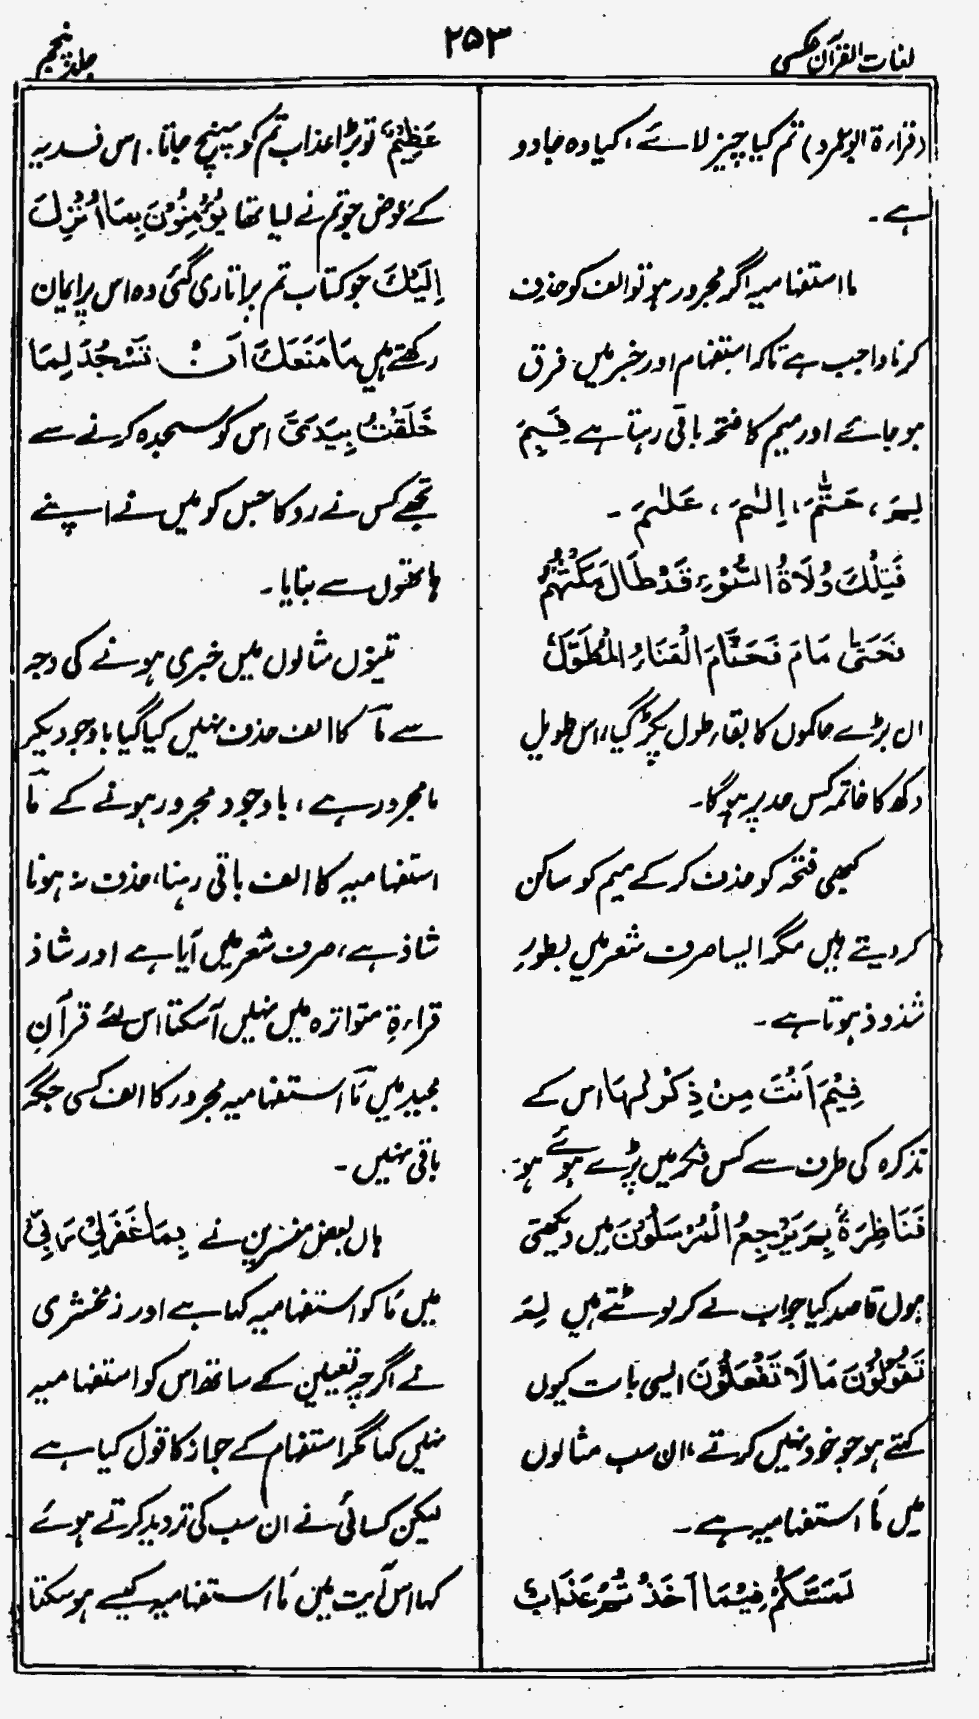 لغات القرآن عکسی
۲۵۳
جلد پنجم
(قراءة ابو عمرو) تم کیا چیز لائے، کیا وہ جادو
ہے۔
ما استفہامیہ اگر مجرور ہو تو الف کو حذف
کرنا واجب ہے تاکہ استفہام اور خبر میں فرق
ہو جائے اور میم کا فتحہ باقی رہتا ہے فِیْمَ
لِمَ، حَتّٰمَ، اِلٰمَ، عَلٰمَ۔
فَتِلْكَ وُلَاةُ السُّوْءِ قَدْ طَالَ مَكْثُهُمْ
فَحَتّٰى مَامَ فَحَتَّامَ الْعَنَاءُ الْمُطَوَّلُ
ان بڑے حاکموں کا بقاء طول پکڑ گیا، اس طویل
دکھ کا خاتمہ کس حد پر ہوگا۔
کبھی فتحہ کو حذف کرکے میم کو ساکن
کر دیتے ہیں مگر ایسا صرف شعر میں بطورِ
شذوذ ہوتا ہے۔
فِیْمَ اَنْتَ مِنْ ذِكْرٰىهَا اس کے
تذکرہ کی طرف سے کس فکر میں پڑے ہوئے ہو۔
فَنَاظِرَةٌ بِمَ یَرْجِعُ الْمُرْسَلُوْنَ میں دیکھتی
ہوں قاصد کیا جواب لے کر لوٹتے ہیں لِمَ
تَقُوْلُوْنَ مَا لَا تَفْعَلُوْنَ ایسی بات کیوں
کہتے ہو جو خود نہیں کرتے، ان سب مثالوں
میں مَا استفہامیہ ہے۔
لَمَسَّكُمْ فِیْمَا اَخَذْتُمْ عَذَابٌ
عَظِیْمٌ تو بڑا عذاب تم کو پہنچ جاتا۔ اس فدیہ
کے عوض جو تم نے لیا تھا یُؤْمِنُوْنَ بِمَا اُنْزِلَ
اِلَیْكَ جو کتاب تم پر اتاری گئی وہ اس پر ایمان
رکھتے ہیں مَا مَنَعَكَ اَنْ تَسْجُدَ لِمَا
خَلَقْتُ بِیَدَیَّ اس کو سجدہ کرنے سے
تجھے کس نے روکا جس کو میں نے اپنے
ہاتھوں سے بنایا۔
تینوں مثالوں میں خبری ہونے کی وجہ
سے مَا کا الف حذف نہیں کیا گیا باوجودیکہ
ما مجرور ہے، باوجود مجرور ہونے کے مَا
استفہامیہ کا الف باقی رہنا، حذف نہ ہونا
شاذ ہے، صرف شعر میں آیا ہے اور شاذ
قراءةِ متواترہ میں نہیں آسکتا اس لئے قرآنِ
مجید میں مَا استفہامیہ مجرور کا الف کسی جگہ
باقی نہیں۔
ہاں بعض مفسرین نے بِمَا غَفَرَ لِیْ رَبِّیْ
میں مَا کو استفہامیہ کہا ہے اور زمخشری
نے اگرچہ تعیین کے ساتھ اس کو استفہامیہ
نہیں کہا مگر استفہام کے جواز کا قول کیا ہے
لیکن کسائی نے ان سب کی تردید کرتے ہوئے
کہا اس آیت میں مَا استفہامیہ کیسے ہو سکتا